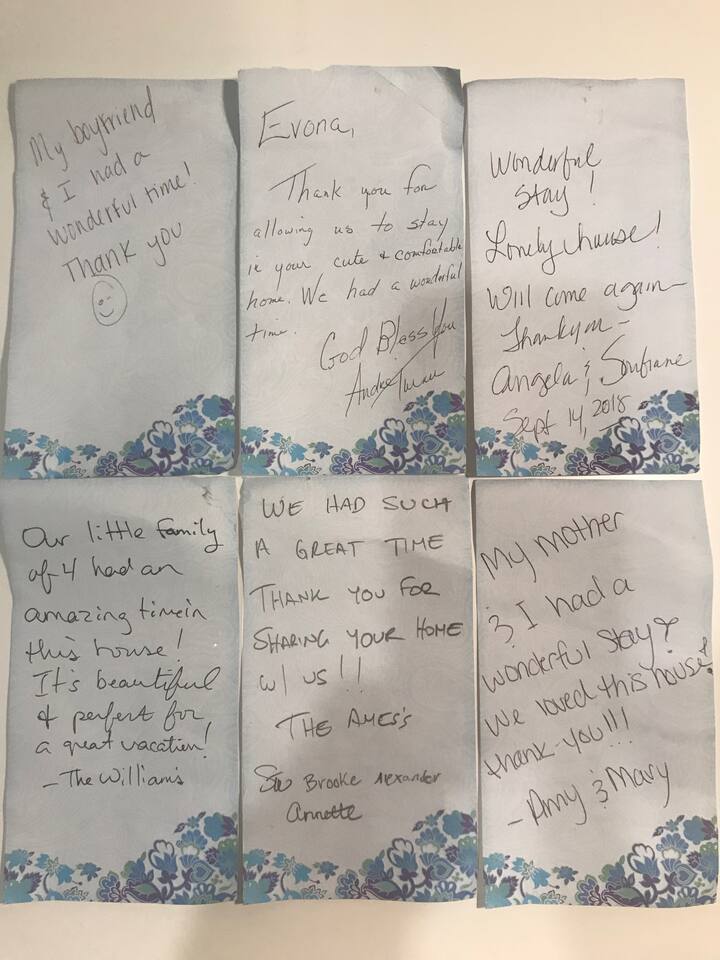 My boyfriend
& I had a
wonderful time!
Thank you
Evona,
Thank you for
allowing us to stay
in your cute & comfortable
home. We had a wonderful
time.
God Bless You
Wonderful
Stay!
Lonely house!
Will come again
Thank you –
Angela &
Sept 14, 2018
Our little family
of 4 had an
amazing time in
this house!
It's beautiful
& perfect for
a great vacation!
– The William's
WE HAD SUCH
A GREAT TIME
THANK YOU FOR
SHARING YOUR HOME
W/ US!!
THE AMES'S
Brooke Alexander
Annette
My mother
& I had a
wonderful stay &
we loved this house!
thank-you!!!
– Amy & Mary